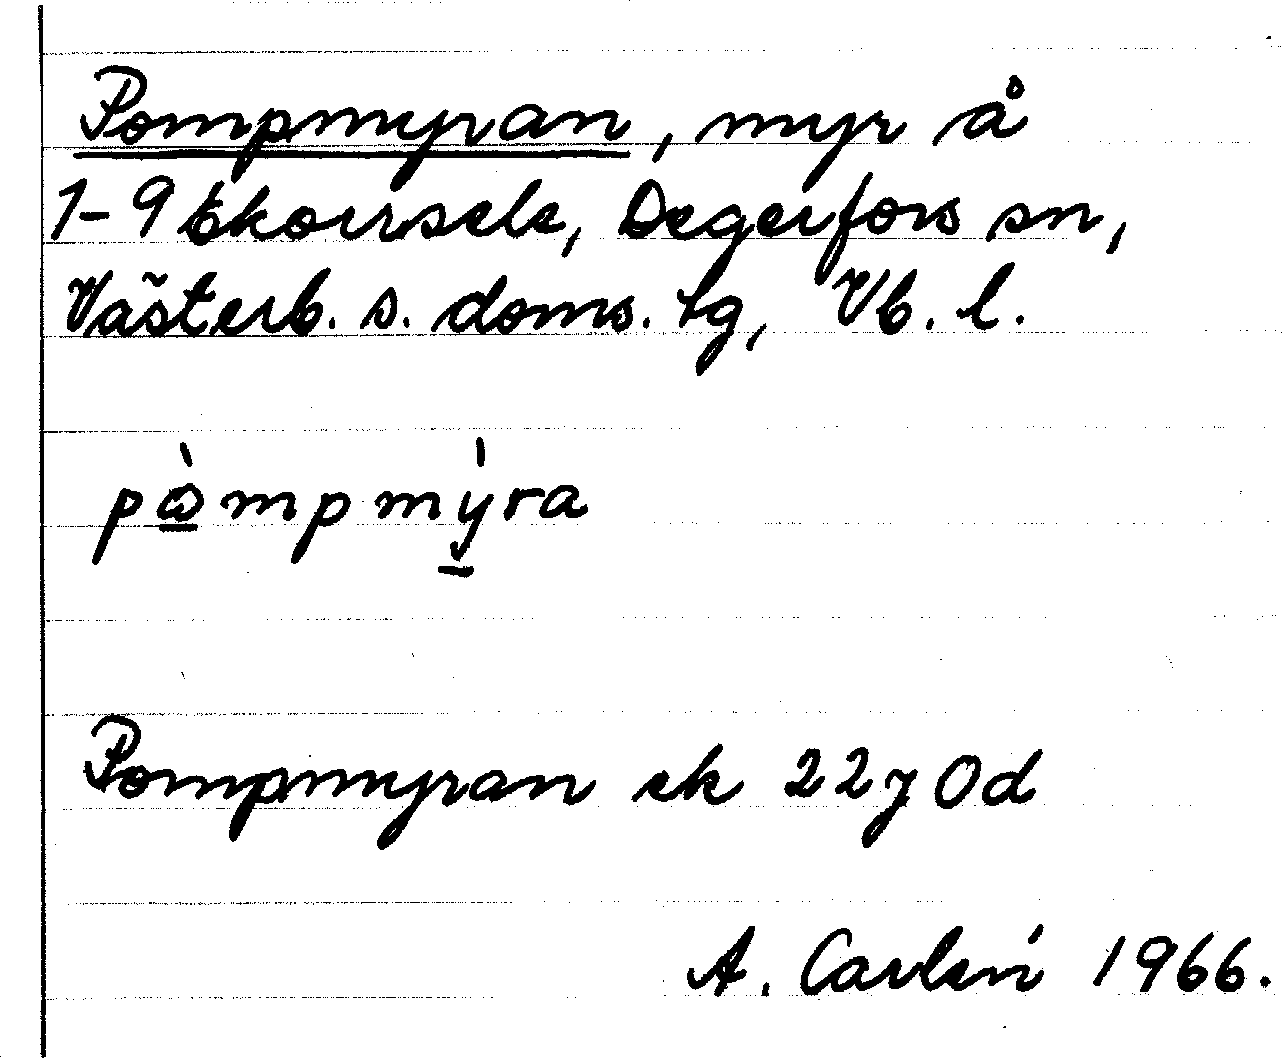 Pompmyran, myr å
1-9 Ekorrsele, Degerfors sn,
Västerb. s. doms. tg, Vb. l.
pὼ̲mpmý̲ra
Pompmyran ek 22j0d
A. Carlén 1966.